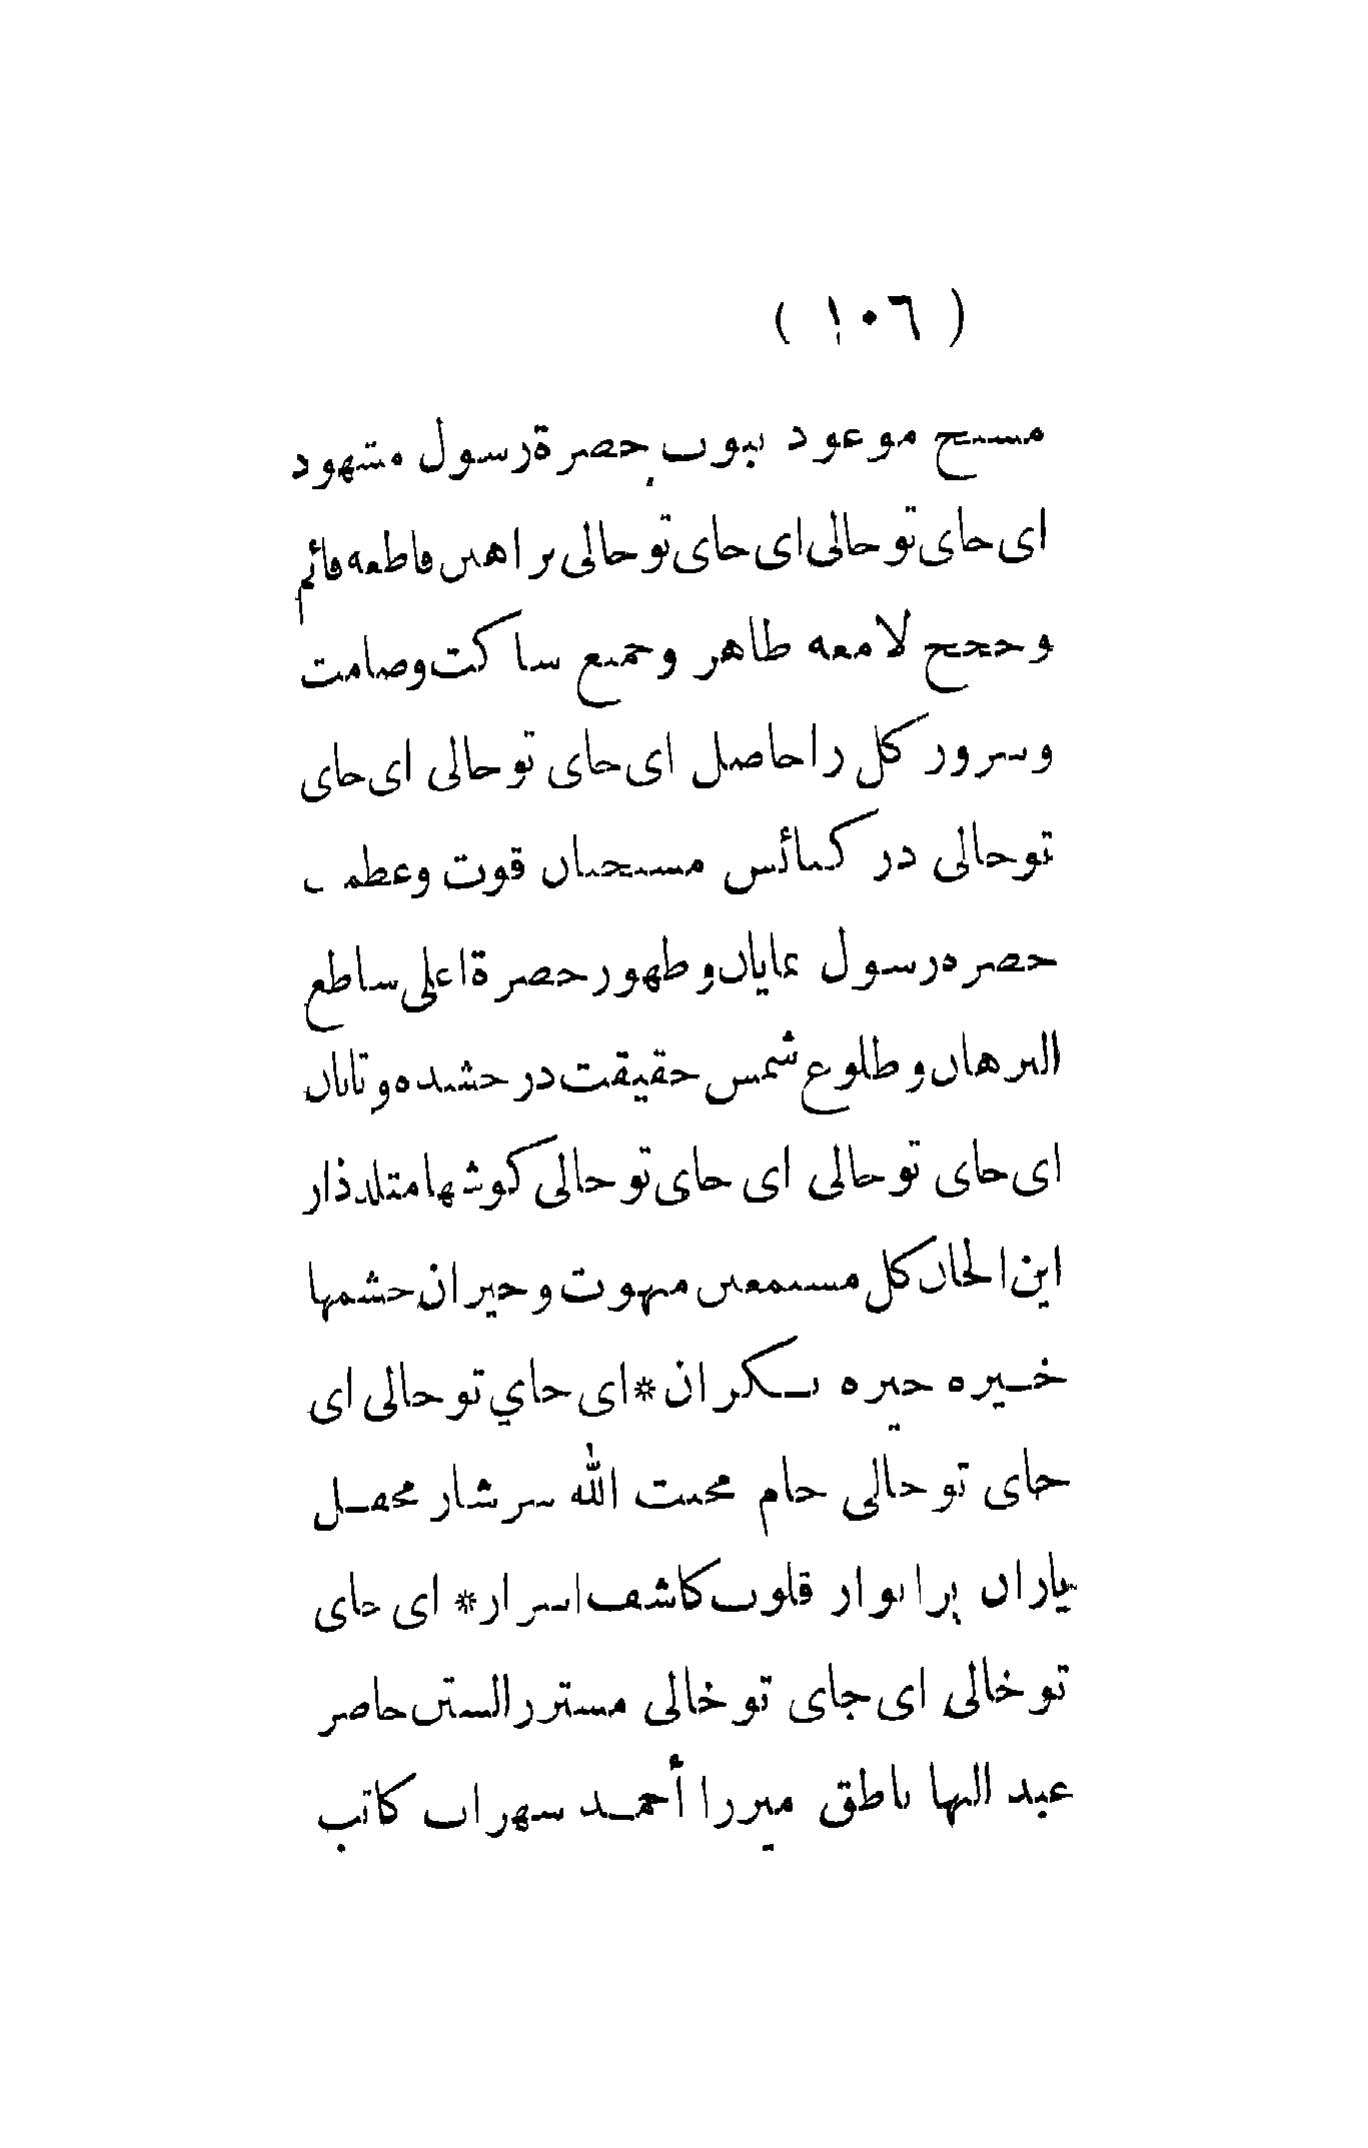 ( ١٠٦ )
مسیح موعود نبوت حضرة رسول مشهود
ای جای تو خالی ای جای تو خالی براهین قاطعه قائم
وحجج لامعه ظاهر وجمیع ساکت وصامت
وسرور کل را حاصل ای جای تو خالی ای جای
تو خالی در کنائس مسیحیان قوت وعظمت
حضره رسول نمایان وظهور حضرة اعلی ساطع
البرهان وطلوع شمس حقیقت درخشنده وتابان
ای جای تو خالی ای جای تو خالی کوشها متلذذ از
این الحان کل مستمعین مبهوت وحیران چشمها
خیره خیره نکران * ای جاي تو خالی ای
جای تو خالی جام محبت الله سرشار محفل
یاران پر انوار قلوب کاشف اسرار * ای جای
تو خالی ای جای تو خالی مستر رالستن حاضر
عبد البها ناطق میرزا أحمد سهراب کاتب